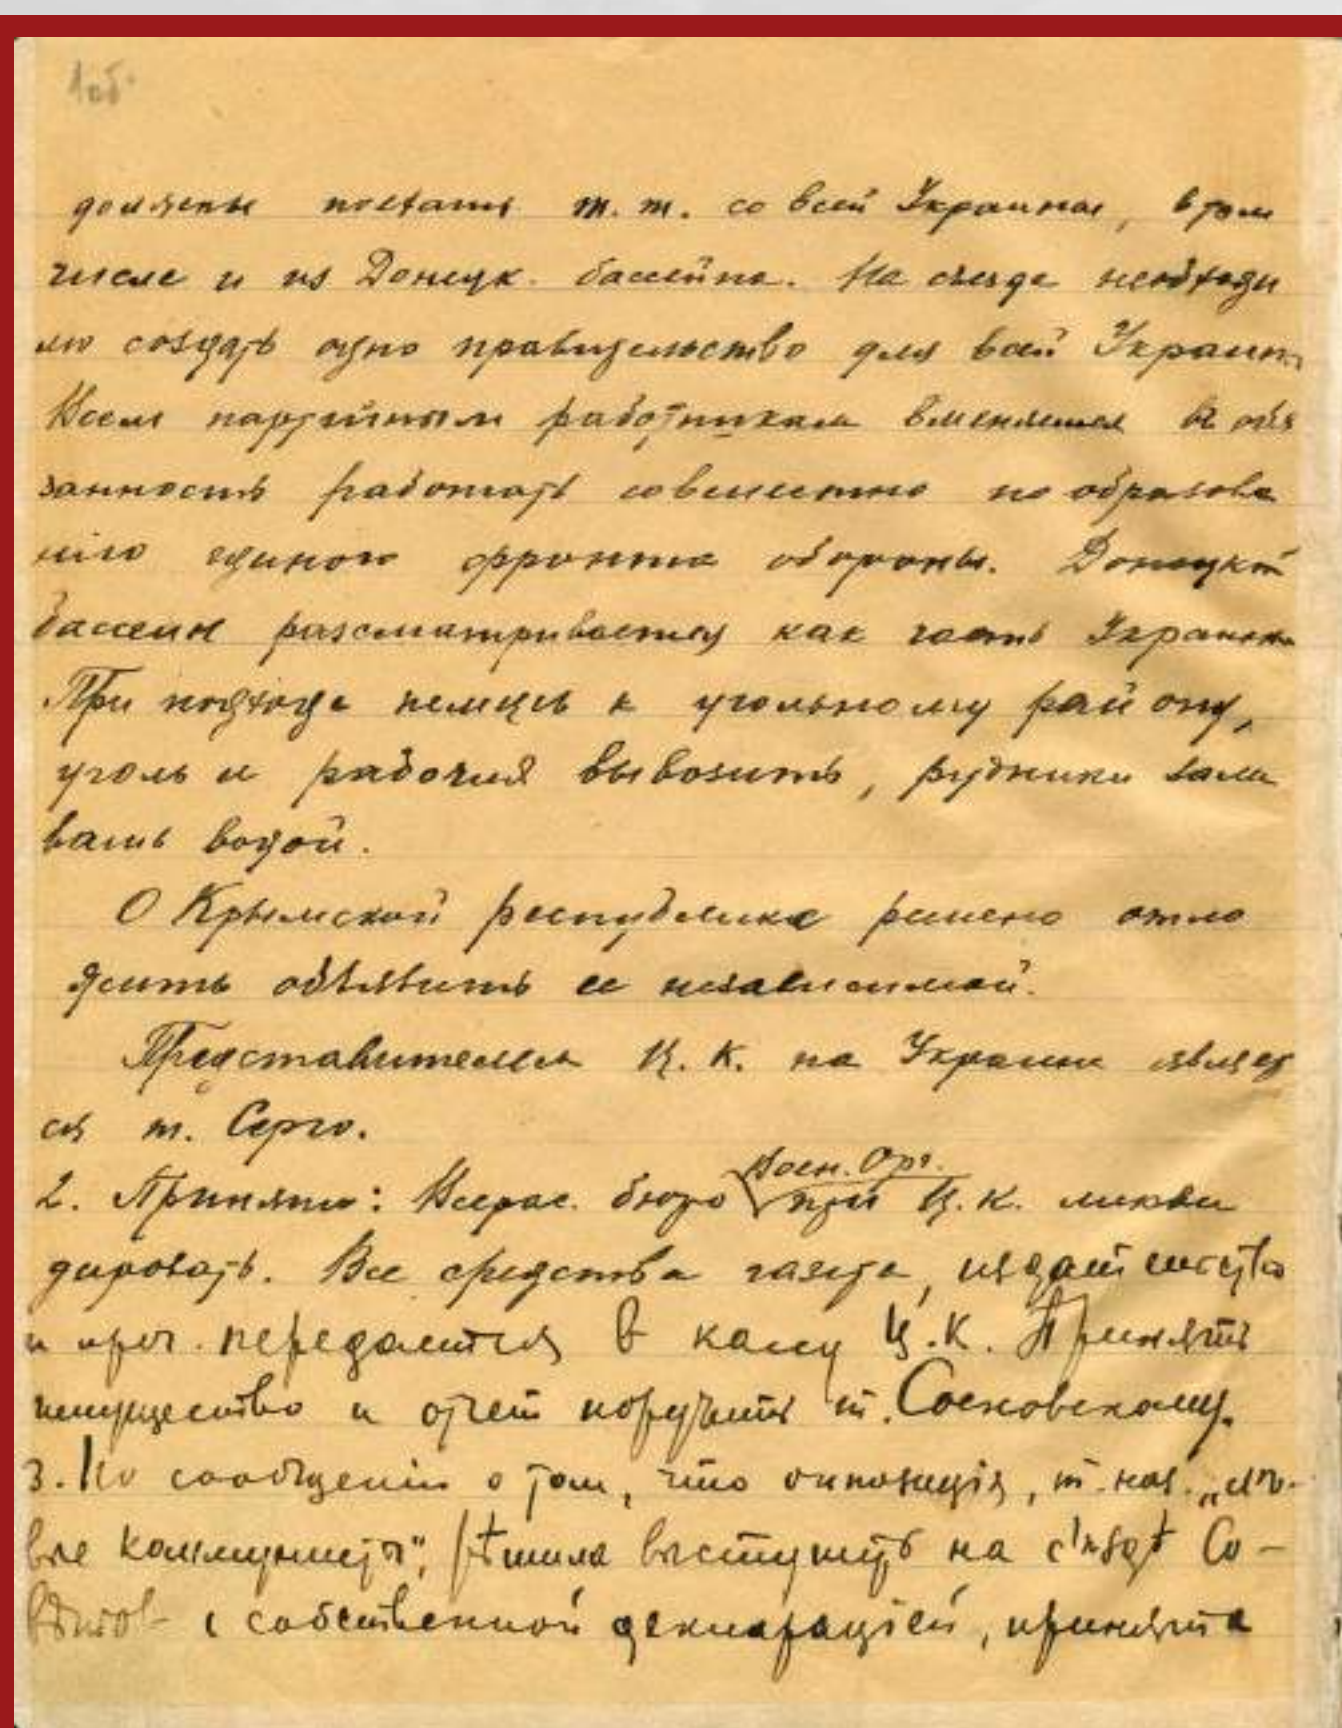 1об.
должны поехать т.т. со всей Украины, в том
числе и из Донецк. бассейна. На съезде необходи
мо создать одно правительство для всей Украины
Всем партийным работникам вменяется в обя
занность работать совместно по образова
нию единого фронта обороны. Донецкий
бассейн разсматривается как часть Украины
При подходе немцев к угольному району,
уголь и рабочих вывозить, рудники зали
вать водой.
О Крымской республике решено отло
жить объявить ее независимой.
Представителем Ц.К. на Украине являет
ся т. Серго.
Воен. Орг.
2. Принято: Всерос. бюро при Ц.К. ликви
дировать. Все средства газета, издательство
и проч. передается в кассу Ц.К. Принять
имущество и отчет поручить т. Сосновскому.
3. По сообщению о том, что оппозиция, т. наз. „ле-
вые коммунисты", рѣшила выступить на с'ѣздѣ Со-
вѣтов с собственной декларацiей, принята